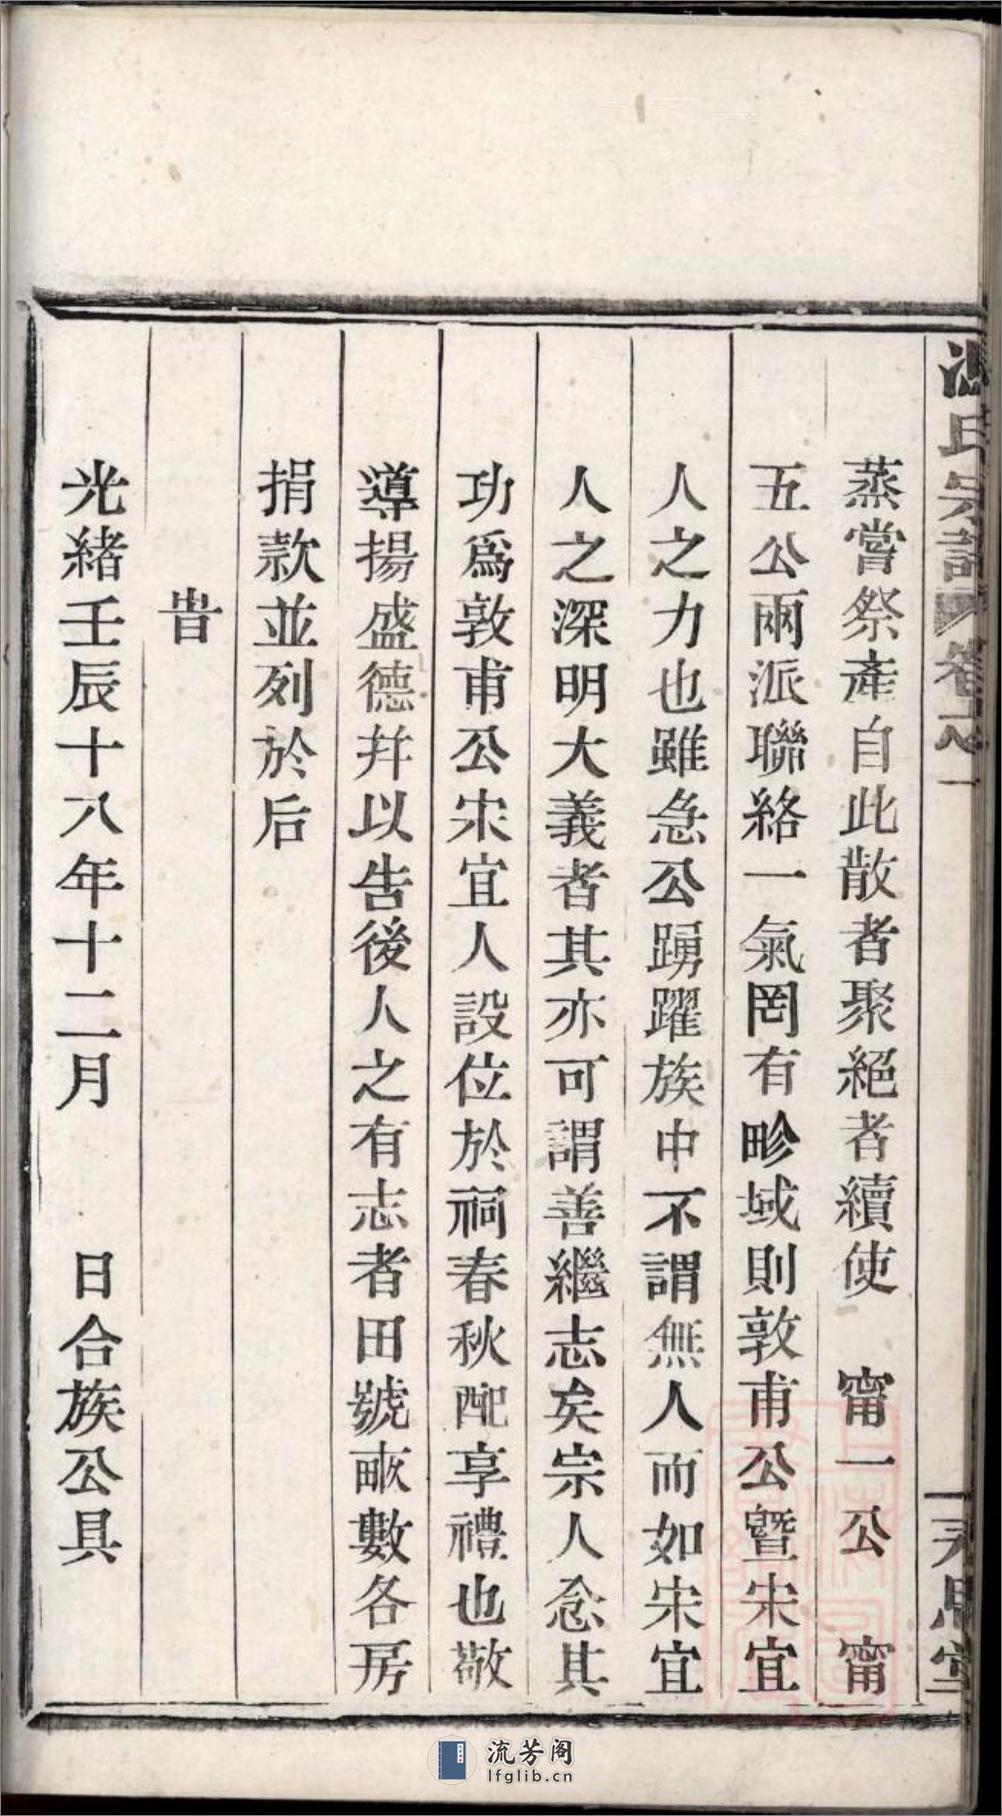 氏宗譜 卷之一
蒸嘗祭產自此散者聚絕者續使 甯一公 甯
五公兩派聯絡一氣罔有畛域則敦甫公暨宋宜
人之力也雖急公踴躍族中不謂無人而如宋宜
人之深明大義者其亦可謂善繼志矣宗人念其
功為敦甫公宋宜人設位於祠春秋配享禮也敬
導揚盛德并以告後人之有志者田號畝數各房
捐款並列於后
旹
光緒壬辰十八年十二月 日合族公具
流芳阁
lfglib.cn